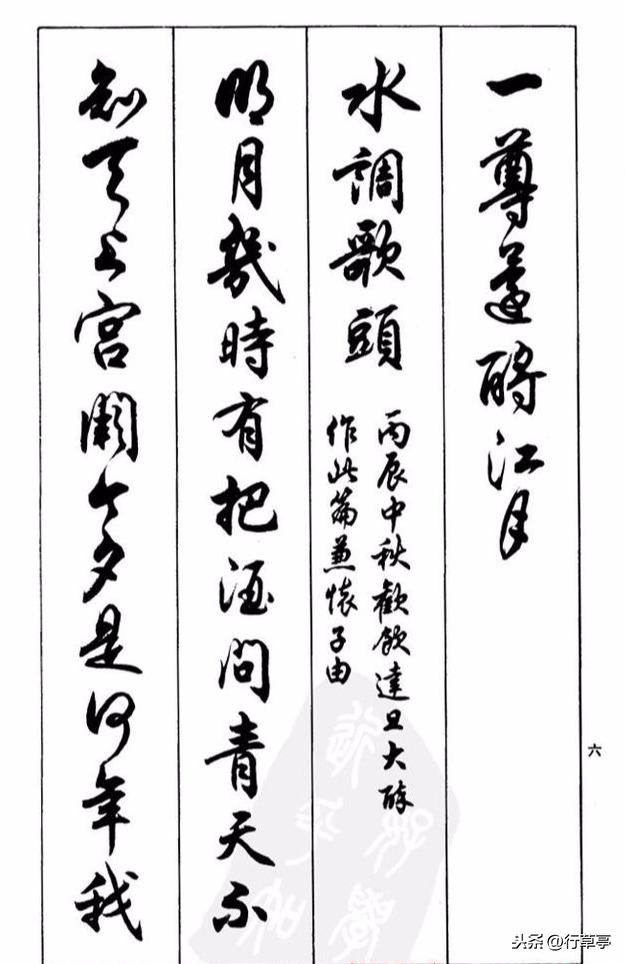 一尊還酹江月
水調歌頭
丙辰中秋歡飲達旦大醉
作此篇兼懷子由
明月幾時有把酒問青天不
知天上宮闕今夕是何年我
六
头条@行草亭